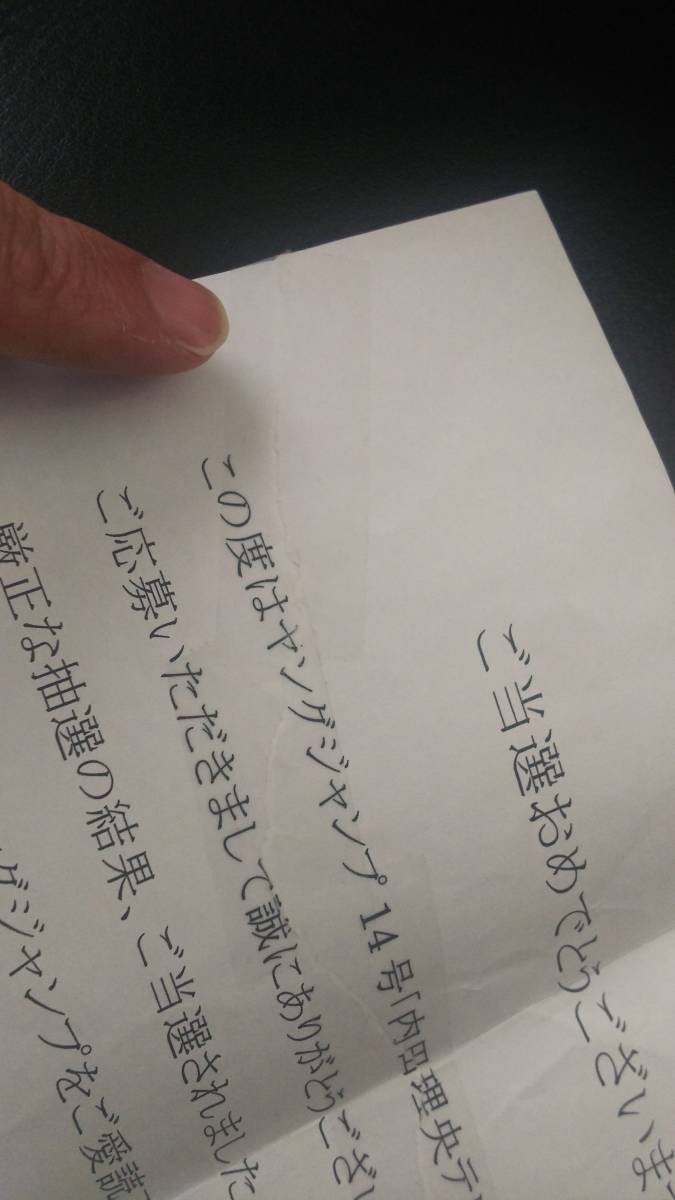 ご当選おめでとうございま
この度はヤングジャンプ 14 号「内田理央テ
ご応募いただきまして誠にありがとうござい
厳正な抽選の結果、ご当選されました
グジャンプをご愛読